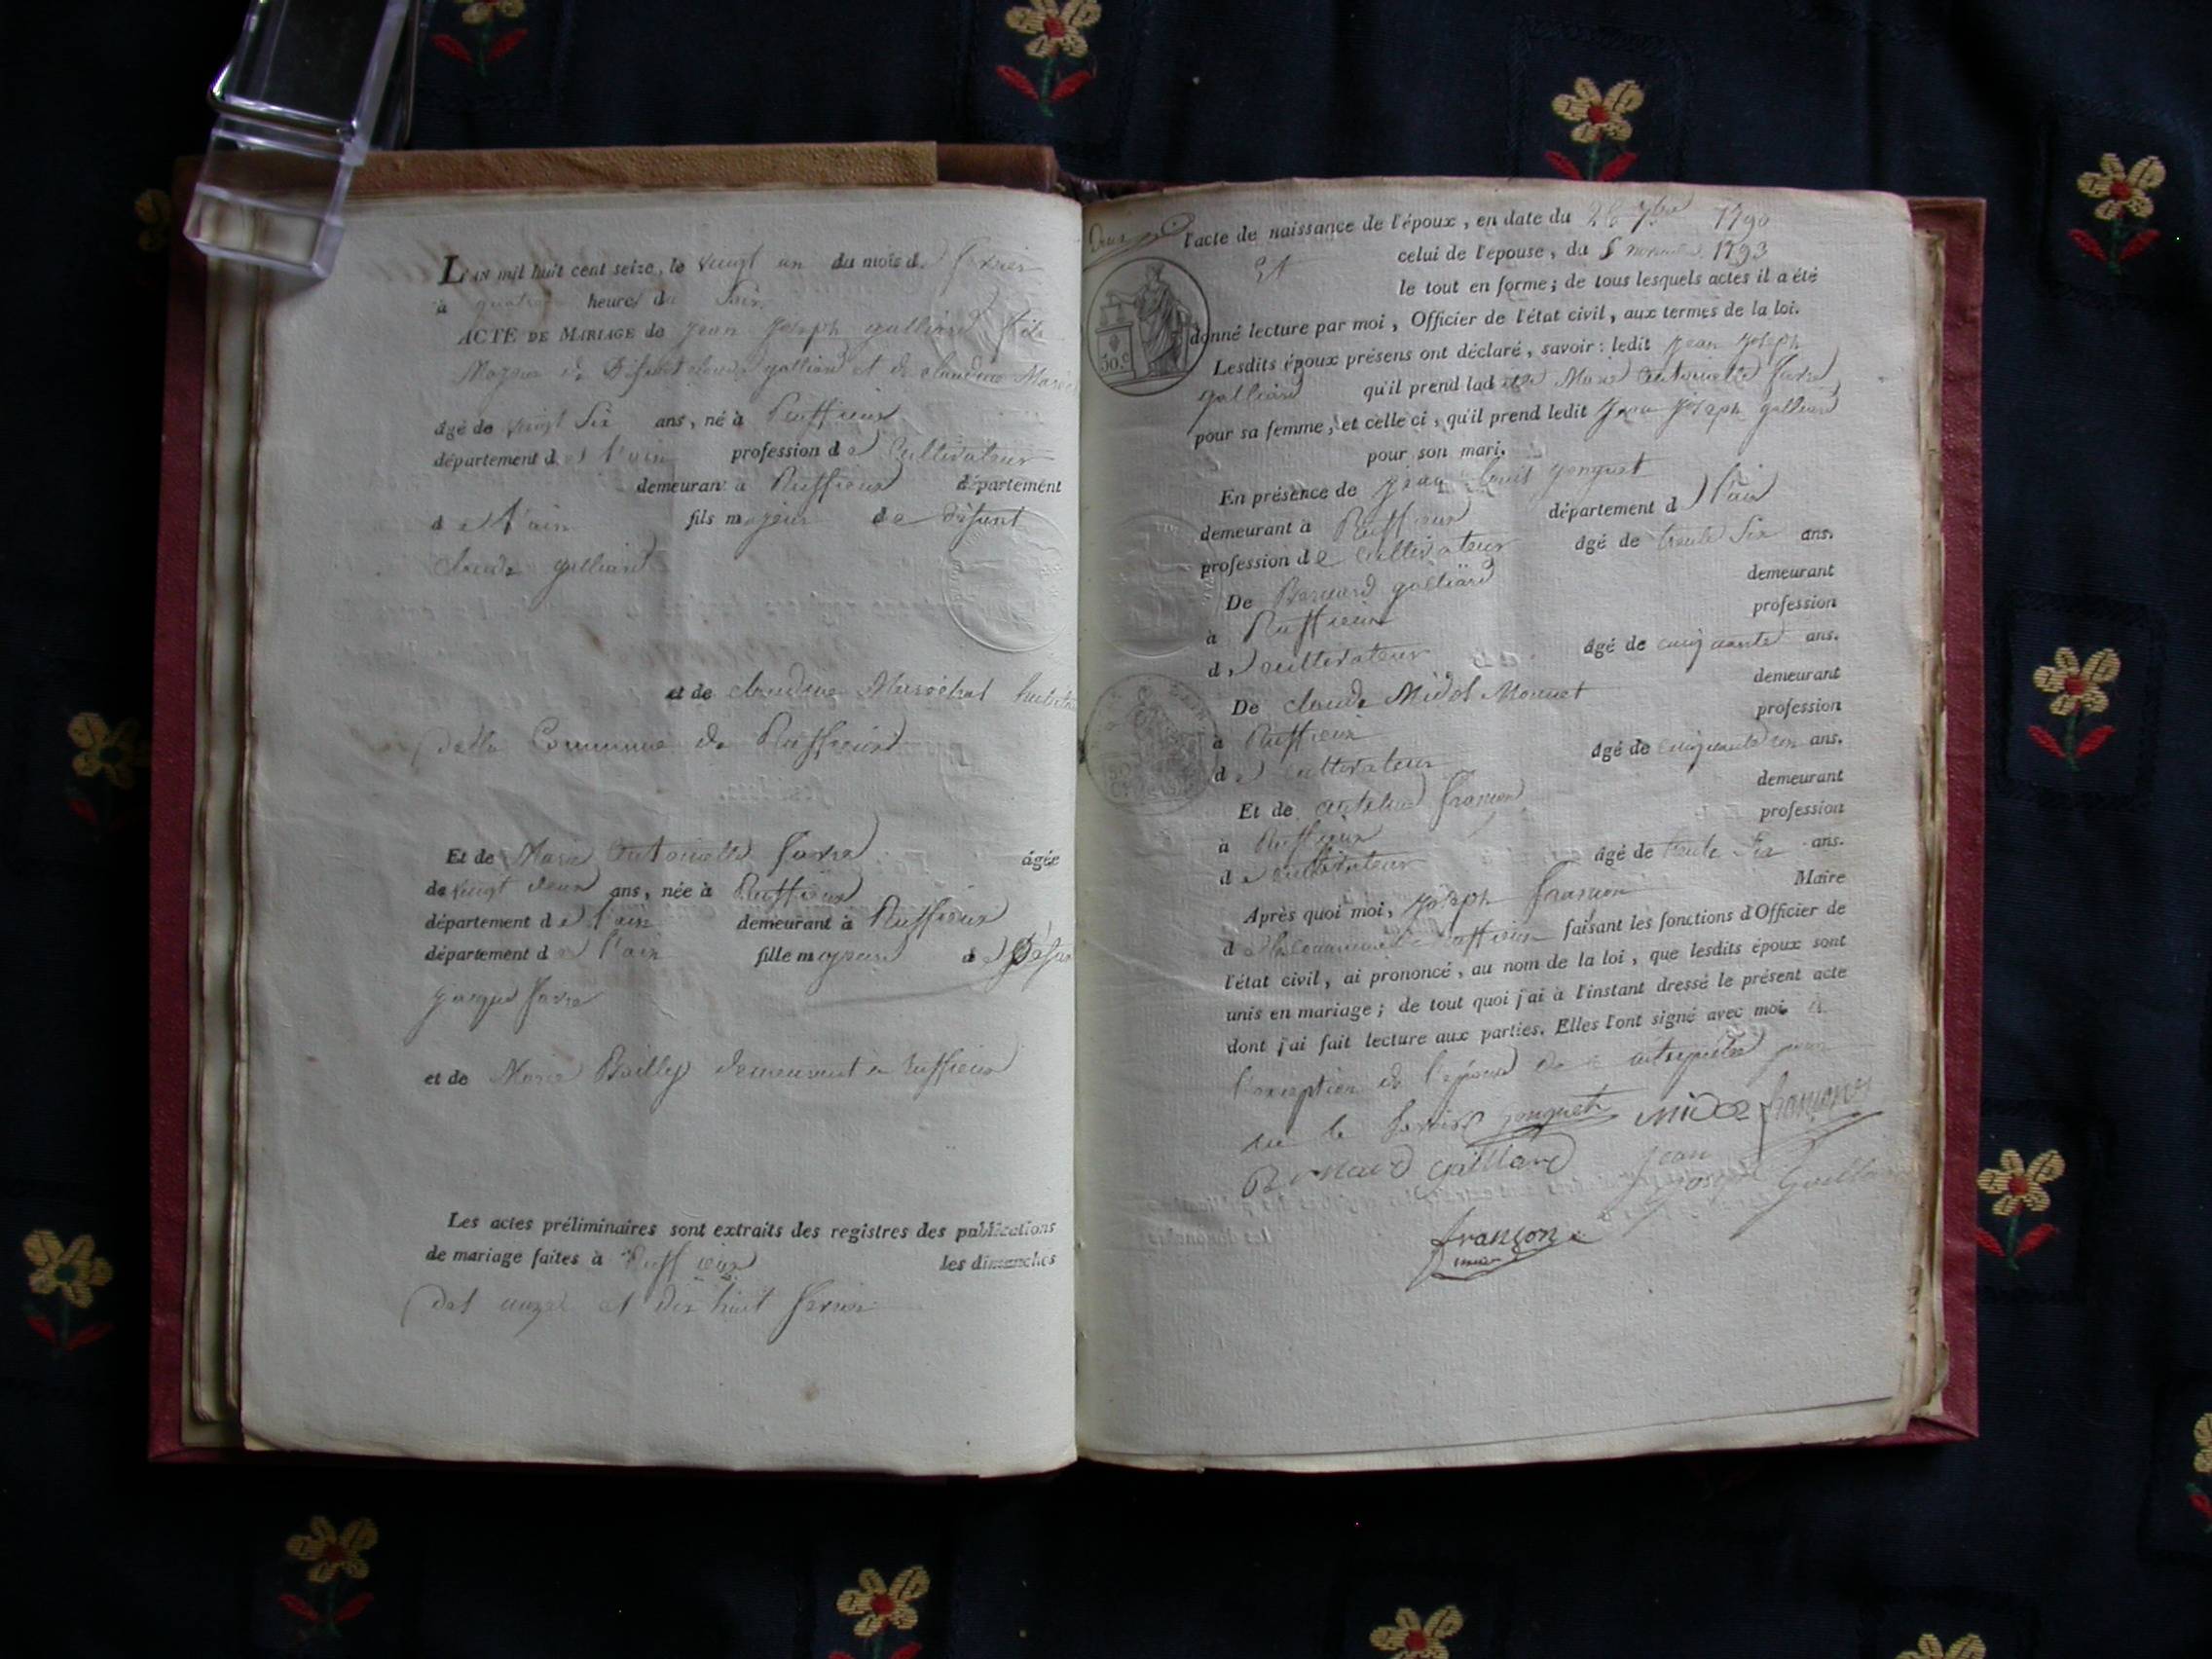 L'AN mil huit cent seize, le vingt un du mois de fevrier
à quatre heures du Soir
ACTE DE MARIAGE de jean joseph galliard fils
Majeur de Défunt claude galliard et de claudine Maréchal
âgé de vingt Six ans, né à Ruffieux
département de l'ain profession de Cultivateur
demeurant à Ruffieux département
de l'ain fils majeur de défunt
claude galliard
et de claudine Maréchal
Commune de Ruffieux
Et de Marie Antoinette favre âgée
de vingt deux ans, née à Ruffieux
département de l'ain demeurant à Ruffieux
département de l'ain fille majeure de
jacque favre
et de Marie Bailly demeurant a ruffieux
Les actes préliminaires sont extraits des registres des publications
de mariage faites à Ruffieux les dimanches
des onze et dix huit fevrier
l'acte de naissance de l'époux, en date du 7bre 1790
Et celui de l'épouse, du 1793
le tout en forme; de tous lesquels actes il a été
donné lecture par moi, Officier de l'état civil, aux termes de la loi.
50.c
Lesdits époux présens ont déclaré, savoir: ledit jean joseph
galliard qu'il prend ladite Marie Antoinette favre
pour sa femme, et celle ci, qu'il prend ledit jean joseph galliard
pour son mari.
En présence de jean Louis gonguet
demeurant à Ruffieux département de l'ain
profession de cultivateur âgé de trente Six ans.
De Bernard galliard demeurant
à Ruffieux profession
de cultivateur âgé de cinquante ans.
De claude Midol Monnet demeurant
à Ruffieux profession
de cultivateur âgé de ans.
Et de antelme françon demeurant
à Ruffieux profession
de cultivateur âgé de trente Six ans.
Après quoi moi, joseph françon Maire
de la commune de Ruffieux faisant les fonctions d'Officier de
l'état civil, ai prononcé, au nom de la loi, que lesdits époux sont
unis en mariage; de tout quoi j'ai à l'instant dressé le présent acte
dont j'ai fait lecture aux parties. Elles l'ont signé avec moi à
l'exception de l'épouse de ce pour
gonguet MiDoL françon
Bernard galliard jean joseph Galliard
françon
maire